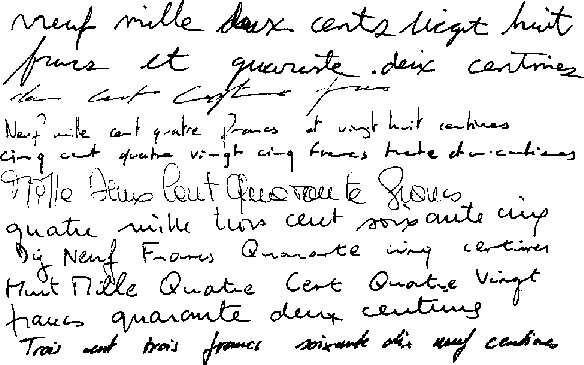 neuf mille deux cents vingt huit
francs et quarante deux centimes
deux cent francs
Neuf mille cent quatre francs et vingt huit centimes
cinq cent quatre vingt cinq francs trente deux centimes
Mille Deux Cent Quarante Francs
quatre mille trois cent soixante cinq
Dix Neuf Francs Quarante cinq centimes
Huit Mille Quatre Cent Quatre Vingt
francs quarante deux centimes
Trois cent trois francs soixante dix neuf centimes